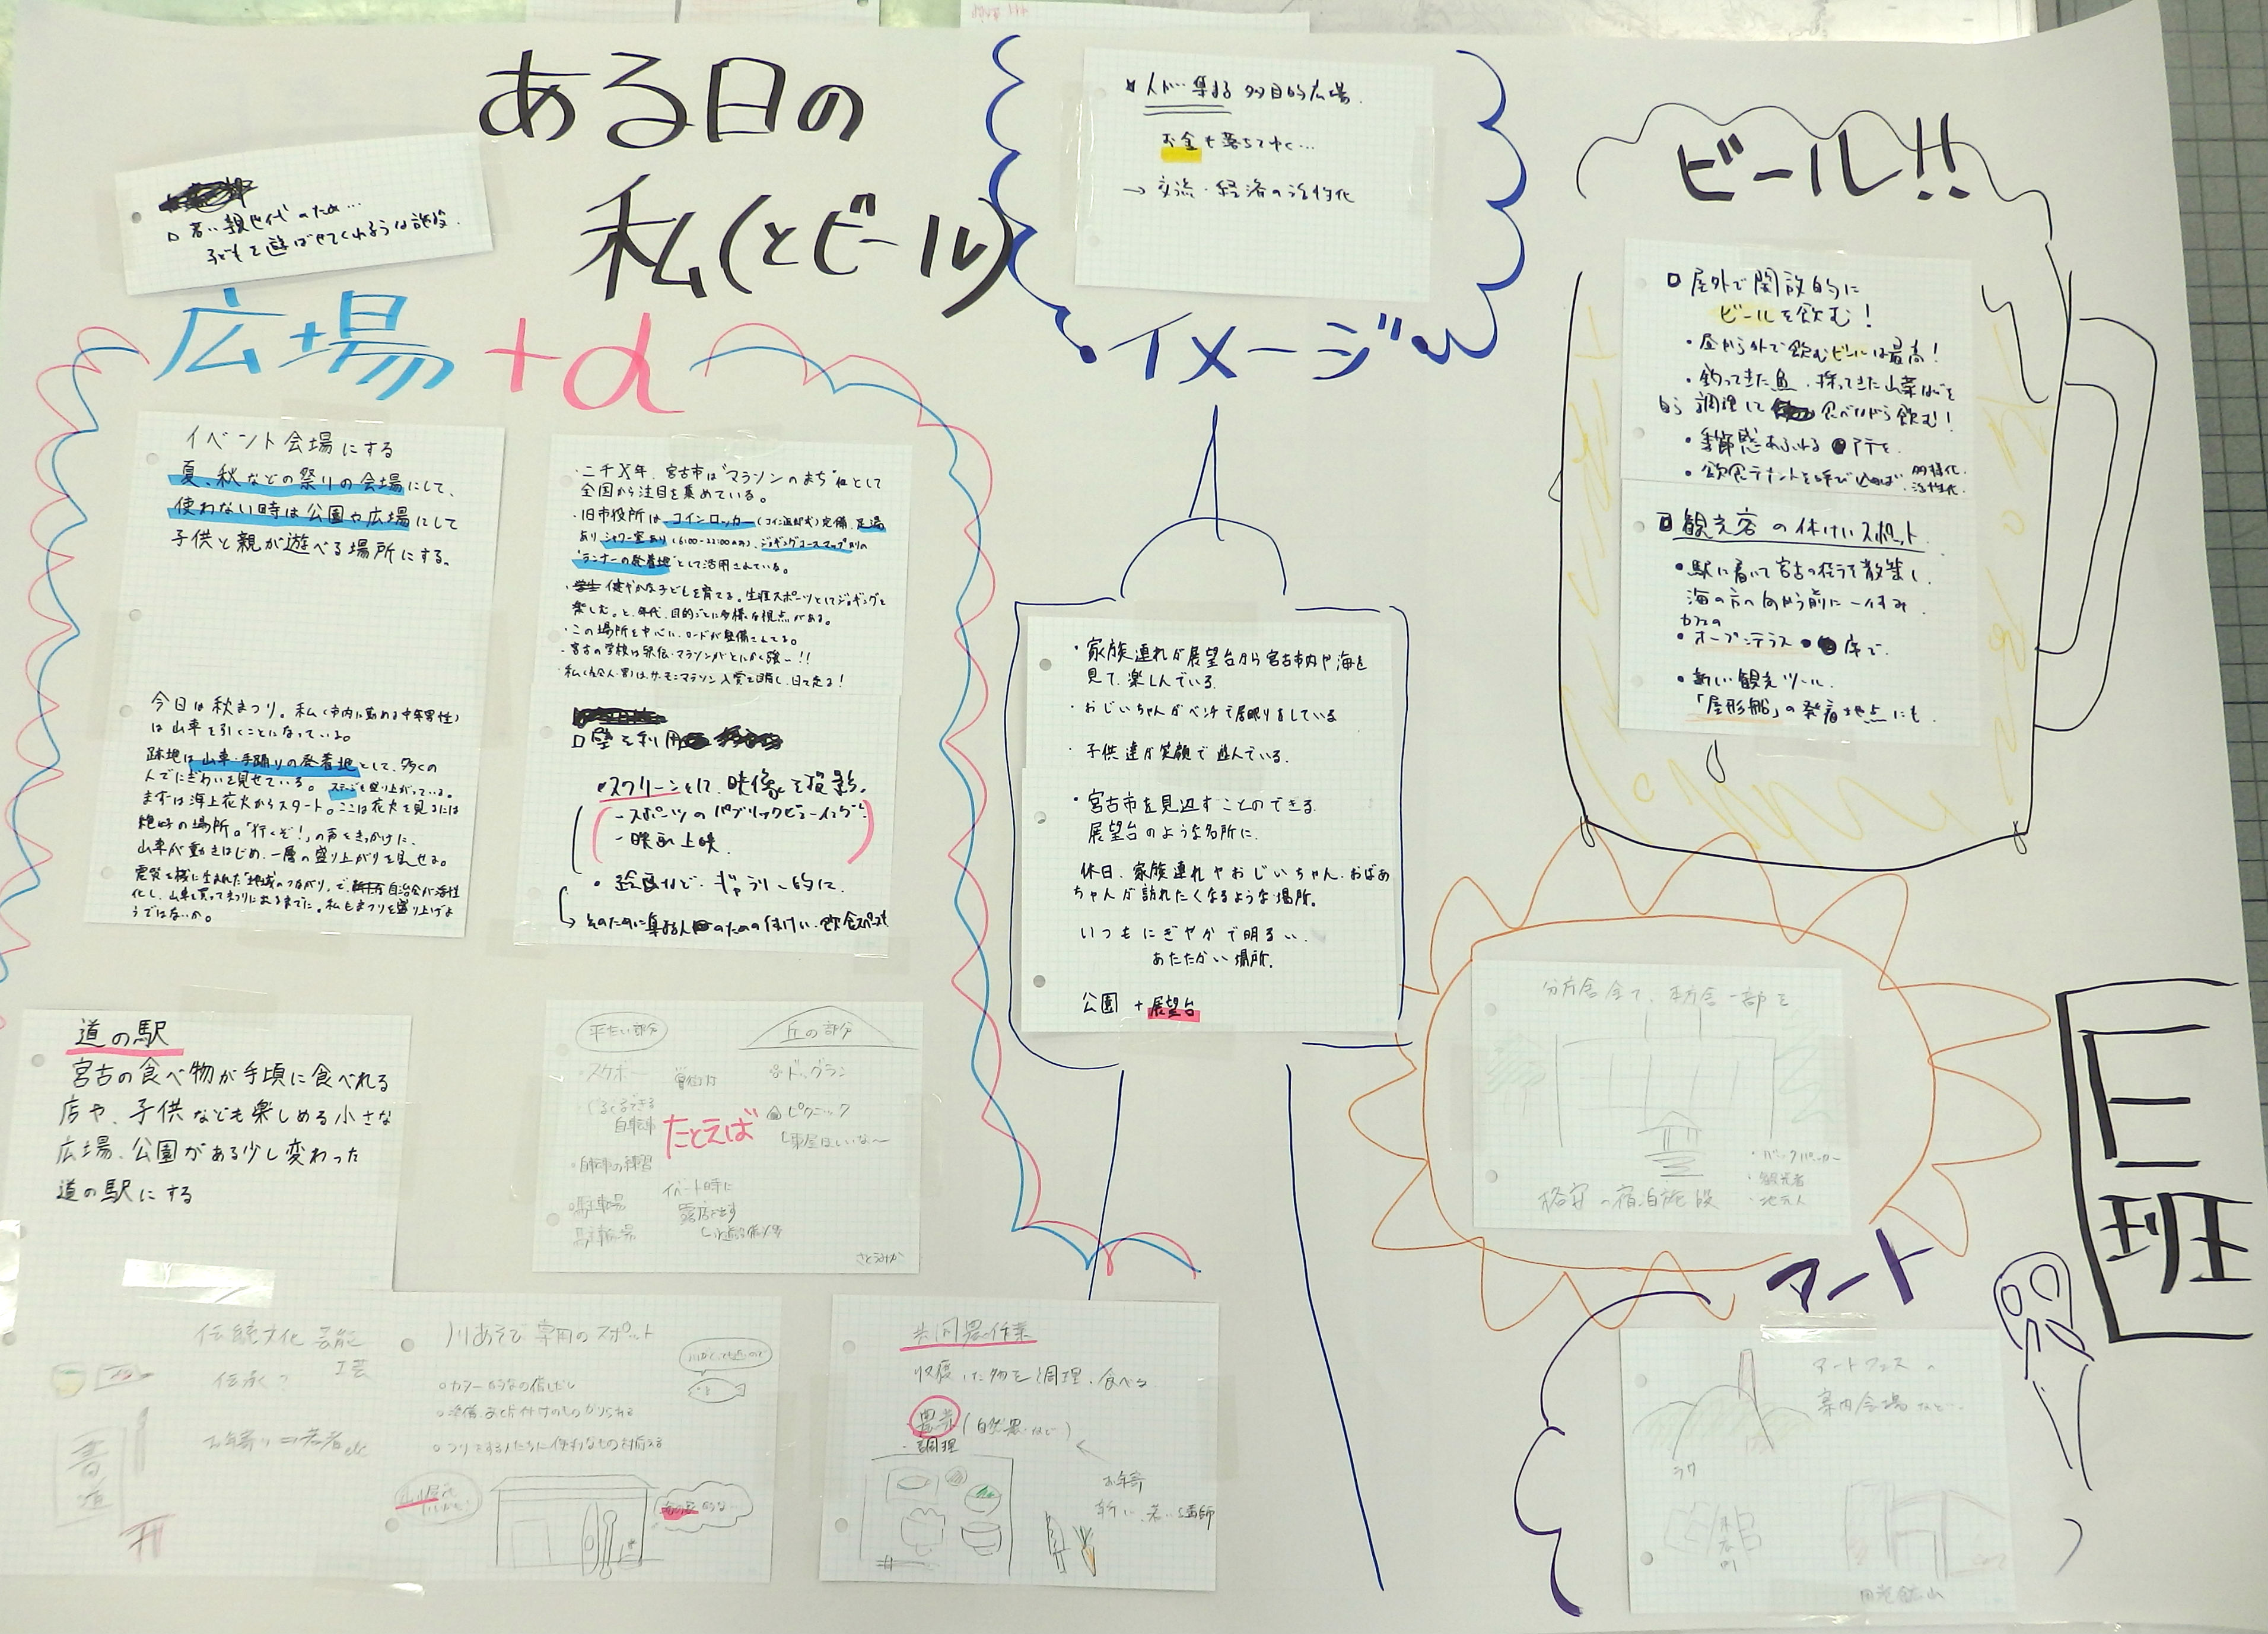 ある日の
私(とビール)
□ 若い親世代のため…
子どもを遊ばせてくれるような施設.
広場+α
イベント会場にする
夏、秋などの祭りの会場にして、
使わない時は公園や広場にして
子供と親が遊べる場所にする。
今日は秋まつり。私(市内に勤める中年男性)
は山車を引くことになっている。
跡地は山車・手踊りの発着地として、多くの
人でにぎわいを見せている。ステージも盛り上がっている。
まずは海上花火からスタート。ここは花火を見るには
絶好の場所。「行くぞ!」の声をきっかけに、
山車が動きはじめ、一層の盛り上がりを見せる。
震災を機に生まれた「地域のつながり」で、自治会が活性
化し、山車を買ってまつりに出るまでに。私もまつりを盛り上げよ
うではないか。
・二千X年、宮古市は"マラソンのまち"として
全国から注目を集めている。
・旧市役所はコインロッカー(コイン返却式)完備、足湯
あり、シャワー室あり(6:00-22:00のみ)、ジョギングコースマップありの
"ランナーの発着地"として活用されている。
・健やかな子どもを育てる。生涯スポーツとしてジョギングを
楽しむ。と、年代、目的ごとに多様な視点がある。
・この場所を中心に、ロードが整備されてる。
・宮古の学校は駅伝・マラソンがとにかく強ー!!
・私(社会人・男)は、サーモンマラソン入賞を目指し、日々走る!
□壁を利用
・スクリーンとして、映像を投影。
-スポーツのパブリックビューイング
-映画上映.
・絵画など、ギャラリー的に.
↳そのために集まる人のための休けい・飲食スペースも
道の駅
宮古の食べ物が手頃に食べれる
店や、子供なども楽しめる小さな
広場、公園がある少し変わった
道の駅にする
平たい部分
丘の部分
・スケボー
ドッグラン
ぐるぐるできる
自転車
たとえば
ピクニック
・自転車の練習
イベント時に
露店だす
駐車場
駐輪場
さとうみか
伝統文化 芸能
工芸
伝承
お年寄り⇒若者etc
書道
川あそび専用のスポット
共同農作業
収穫した物を調理、食べる
農業(自然農など)
・調理
お年寄
講師
イメージ
人が…集まる 多目的広場.
お金も落ちてゆく…
→ 交流・経済の活性化
・家族連れが展望台から宮古市内や海を
見て、楽しんでいる.
・おじいちゃんがベンチで居眠りをしている
・子供達が笑顔で遊んでいる.
・宮古市を見辺すことのできる
展望台のような名所に.
休日、家族連れやおじいちゃん、おばあ
ちゃんが訪れたくなるような場所。
いつもにぎやかで明るい.
あたたかい場所。
公園 + 展望台
ビール!!
□屋外で開放的に
ビールを飲む!
・昼から外で飲むビールは最高!
・釣ってきた魚、採ってきた山菜などを
自ら調理して食べながら飲む!
・季節感あふれるアテを.
・飲食テナントを呼び込めば、多様化.活性化.
□観光客の休けいスポット
・駅に着いて宮古の街を散策し.
海の方へ向かう前に一休み.
カフェの
・オープンテラス席で.
・新しい観光ツール.
「屋形船」の発着地点にも.
分庁舎全て、本庁舎一部を
・バックパッカー
・観光者
・地元人
格安の宿泊施設
アート
アートフェスの
案内会場など…
ラサ
田老鉱山
E班